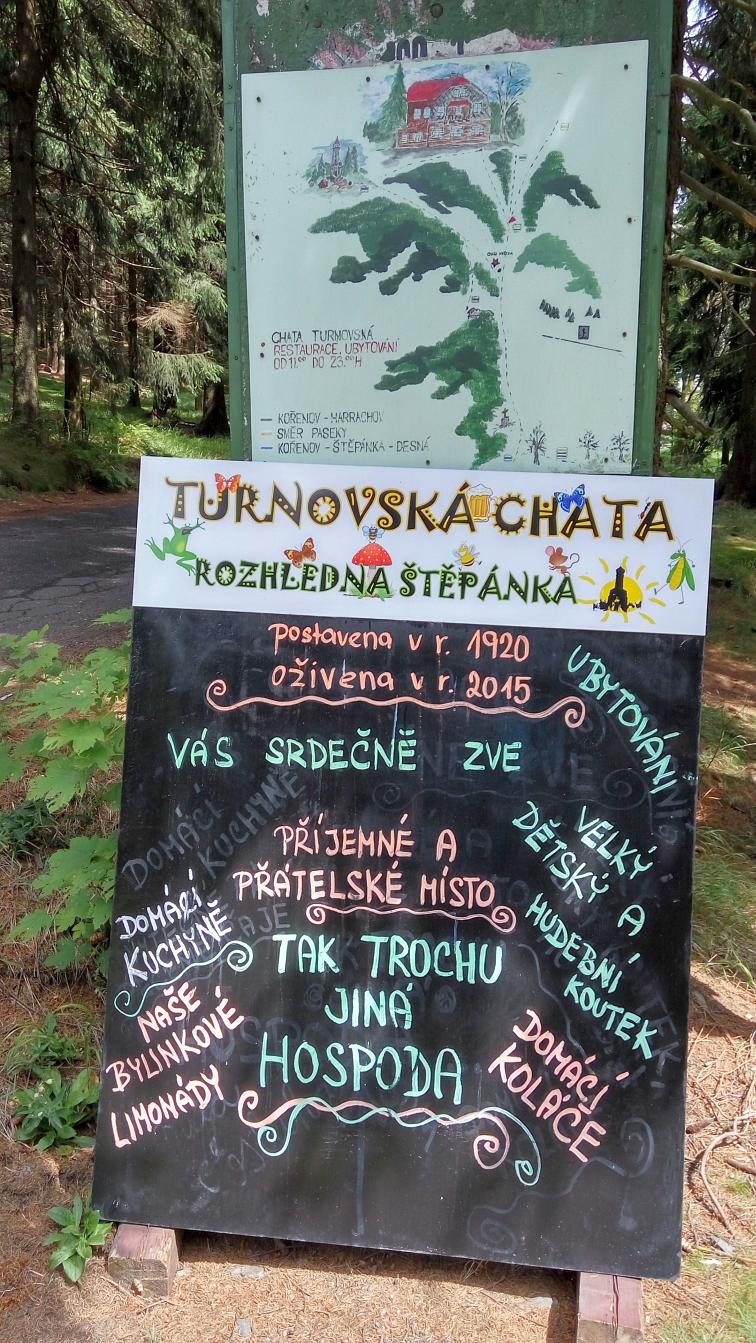 CHATA TURNOVSKÁ
RESTAURACE, UBYTOVÁNÍ
OD 11.00 DO 23.00 H
KOŘENOV - HARRACHOV
SMĚR PASEKY
KOŘENOV - ŠTĚPÁNKA - DESNÁ
TURNOVSKÁ CHATA
ROZHLEDNA ŠTĚPÁNKA
postavena v r. 1920
oživena v r. 2015
UBYTOVÁNÍ
VÁS SRDEČNĚ ZVE
PŘÍJEMNÉ A
PŘÁTELSKÉ MÍSTO
VELKÝ
DĚTSKÝ A
HUDEBNÍ
KOUTEK
DOMÁCÍ
KUCHYNĚ
TAK TROCHU
JINÁ
HOSPODA
NAŠE
BYLINKOVÉ
LIMONÁDY
DOMÁCÍ
KOLÁČE
DOMÁCÍ
KUCHYNĚ